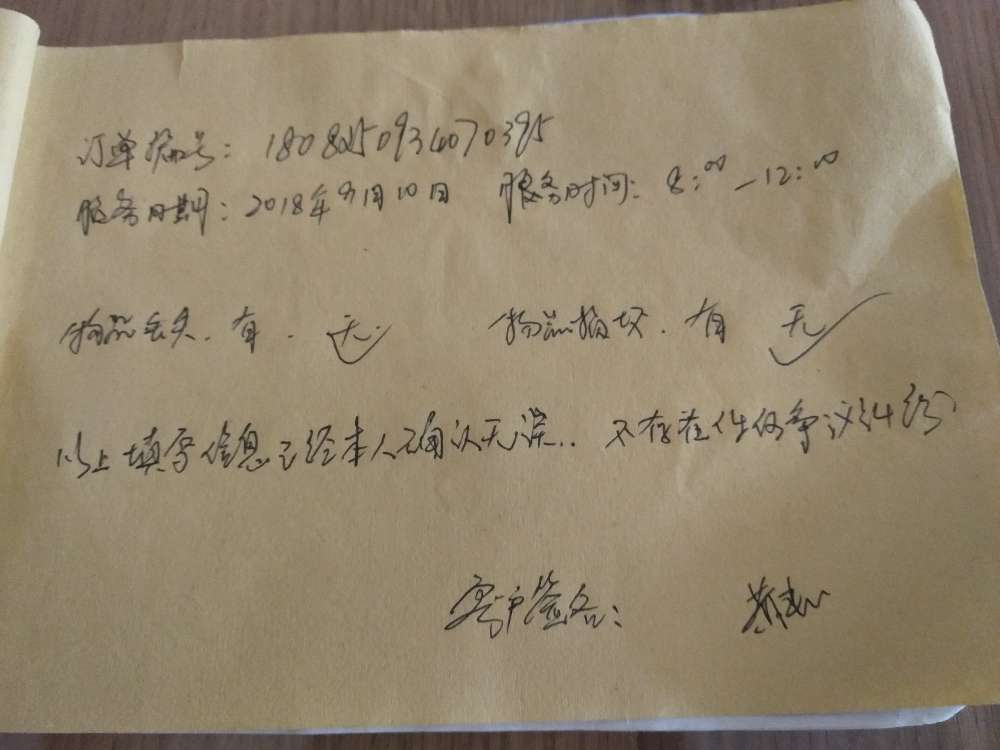 订单编号：1808250934070395
服务日期：2018年9月10日 服务时间：8:00—12:00
物品丢失. 有. 无 物品损坏. 有 无
以上填写信息已经本人确认无误.. 不存在任何争议纠纷
客户签名：